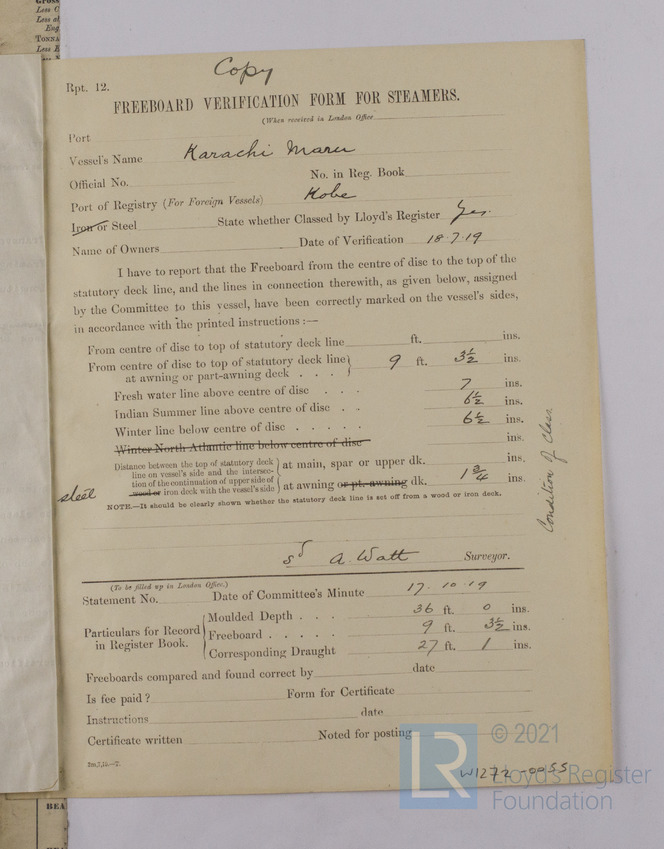 Copy
Rpt. 12.
FREEBOARD VERIFICATION FORM FOR STEAMERS.
(When received in London Office
Port
Vessel's Name Karachi Maru
Official No. No. in Reg. Book
Port of Registry (For Foreign Vessels) Kobe
Iron or Steel State whether Classed by Lloyd's Register Yes.
Name of Owners Date of Verification 18.7.19
I have to report that the Freeboard from the centre of disc to the top of the
statutory deck line, and the lines in connection therewith, as given below, assigned
by the Committee to this vessel, have been correctly marked on the vessel's sides,
in accordance with the printed instructions :—
From centre of disc to top of statutory deck line ft. ins.
From centre of disc to top of statutory deck line
at awning or part-awning deck . . . 9 ft. 3½ ins.
Fresh water line above centre of disc . . . 7 ins.
Indian Summer line above centre of disc . . 6½ ins.
Winter line below centre of disc . . . . . 6½ ins.
Winter North Atlantic line below centre of disc ins.
Distance between the top of statutory deck
line on vessel's side and the intersec- at main, spar or upper dk. ins.
tion of the continuation of upper side of
steel wood or iron deck with the vessel's side at awning or pt. awning dk. 1¾ ins.
NOTE.—It should be clearly shown whether the statutory deck line is set off from a wood or iron deck.
Condition of Class
sd A. Watt Surveyor.
(To be filled up in London Office.)
Statement No. Date of Committee's Minute 17.10.19
Particulars for Record
in Register Book.
Moulded Depth . . . 36 ft. 0 ins.
Freeboard . . . . . 9 ft. 3½ ins.
Corresponding Draught 27 ft. 1 ins.
Freeboards compared and found correct by date
Is fee paid ? Form for Certificate
Instructions date
Certificate written Noted for posting
2m,7,15.—T.
W1272-0055
LR
© 2021
Lloyd's Register
Foundation
GROSS
Less C
Less al
Eng
TONNA
Less E
BEA